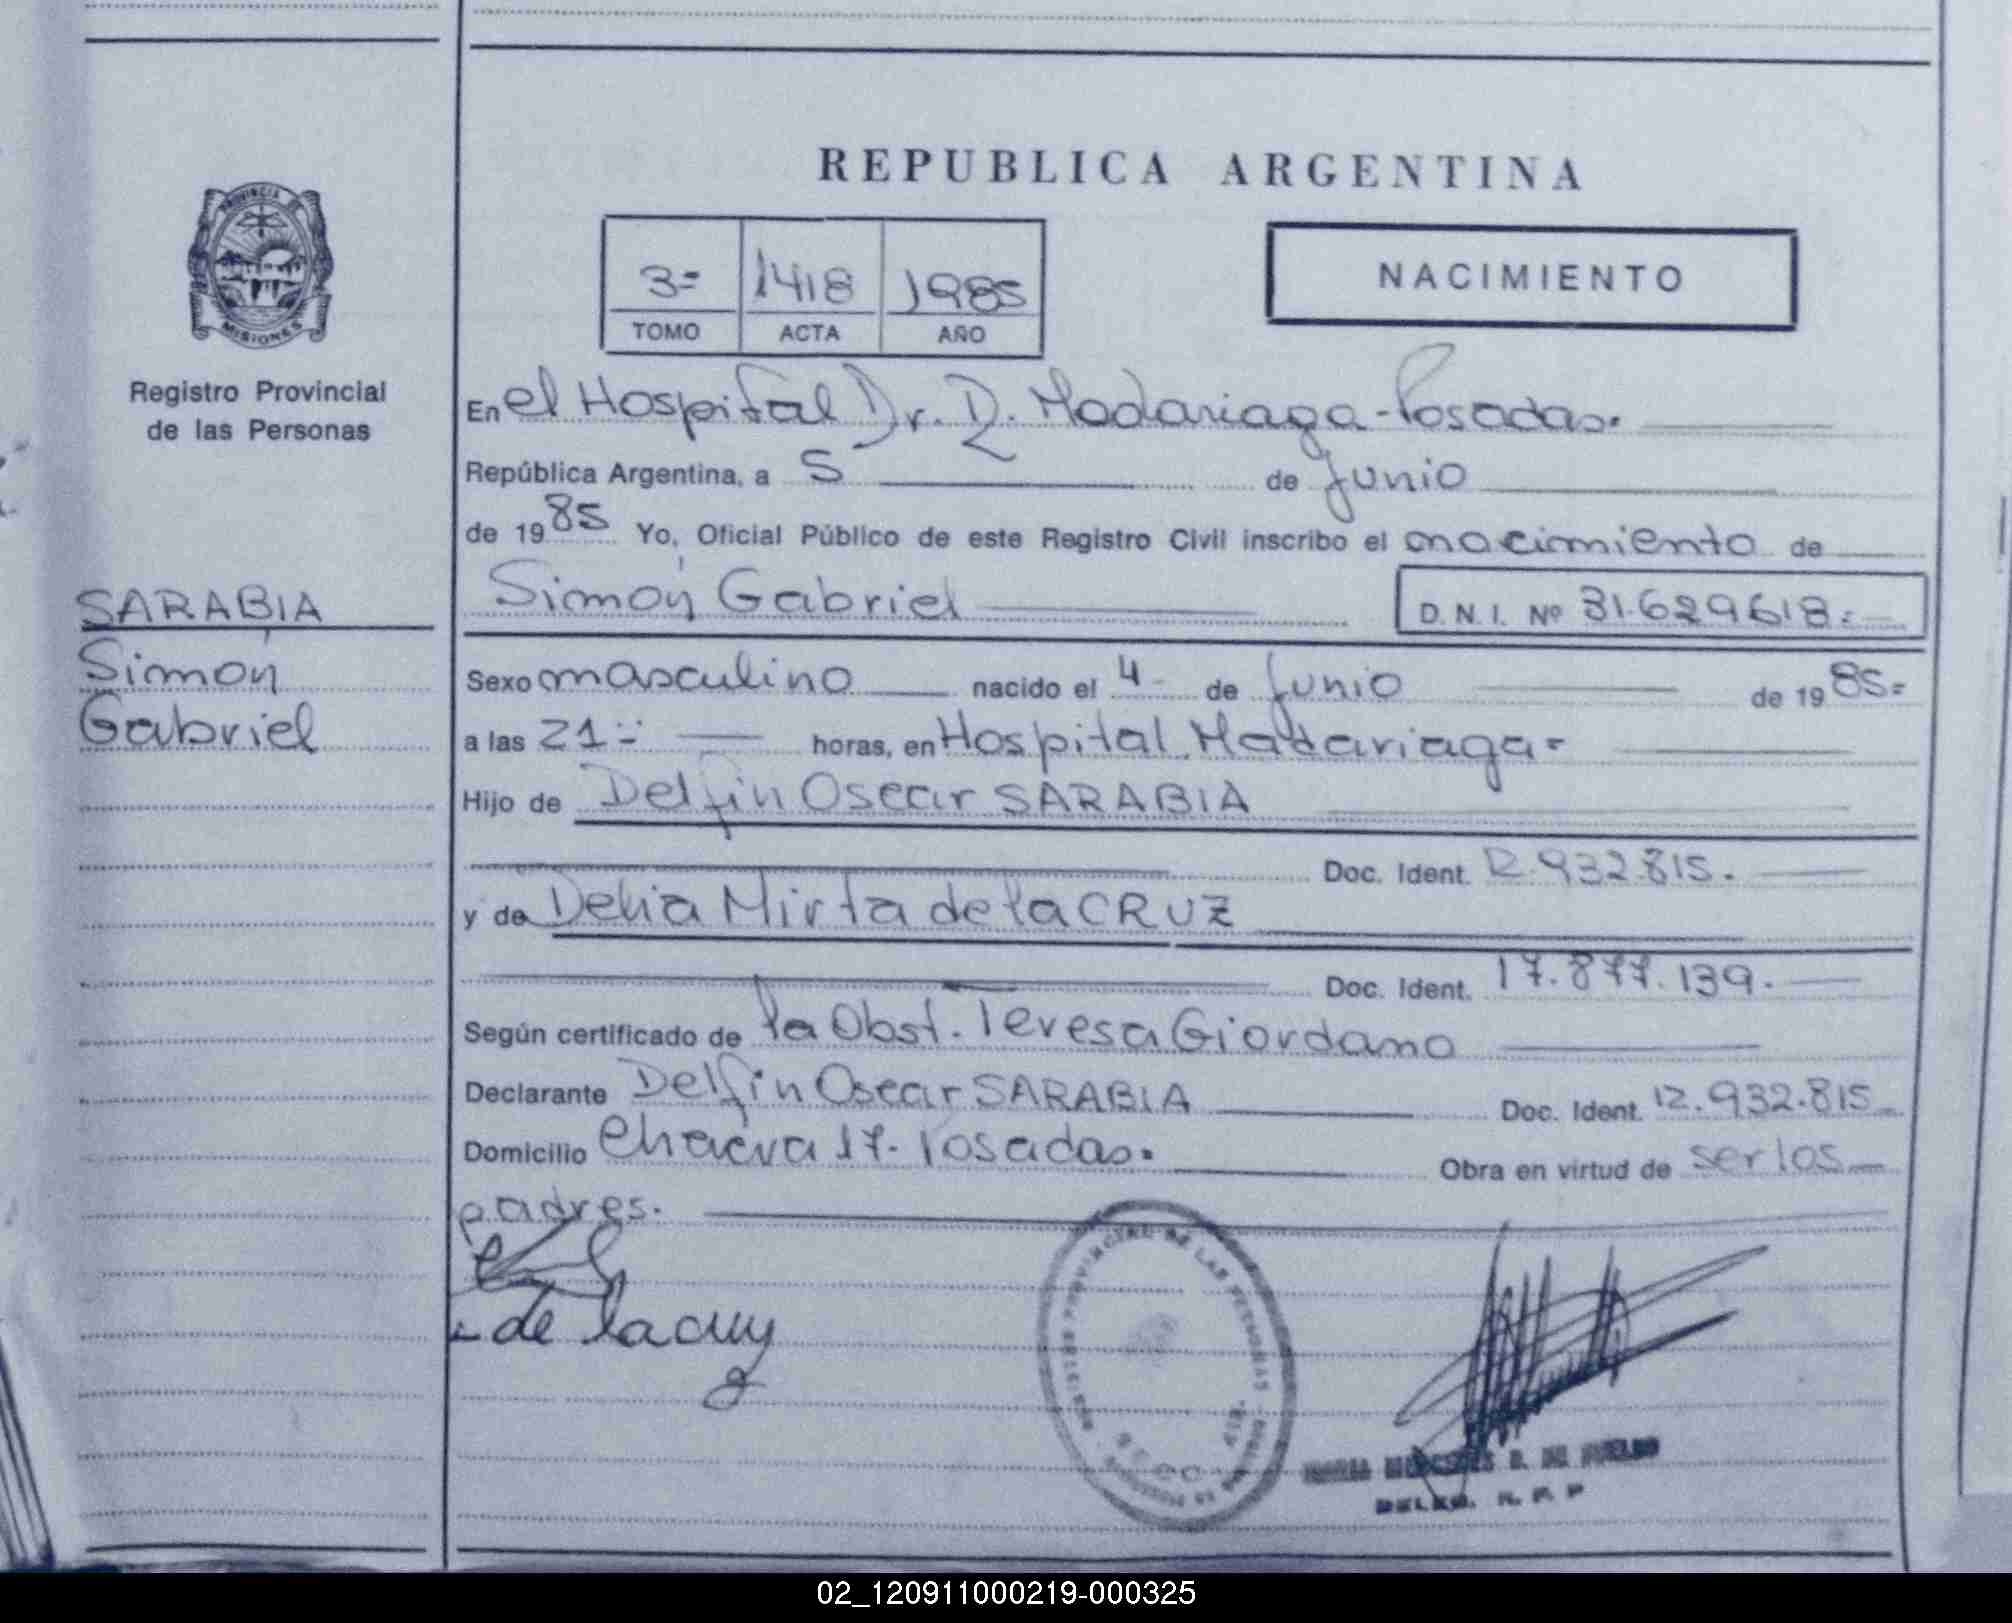 REPUBLICA ARGENTINA
3= 1418 1985
TOMO ACTA AÑO
NACIMIENTO
PROVINCIA DE
MISIONES
Registro Provincial
de las Personas
SARABIA
Simón
Gabriel
En el Hospital Dr. R. Madariaga - Posadas.
República Argentina, a 5 de Junio
de 1985 Yo, Oficial Público de este Registro Civil inscribo el nacimiento de
Simón Gabriel D.N.I. Nº 31.629618.=
Sexo masculino nacido el 4 de Junio de 1985=
a las 21= horas, en Hospital Madariaga=
Hijo de Delfin Oscar SARABIA
Doc. Ident. 12.932.815.
y de Delia Mirta de la CRUZ
Doc. Ident. 17.877.139.
Según certificado de la Obst. Teresa Giordano
Declarante Delfin Oscar SARABIA Doc. Ident. 12.932.815
Domicilio 17. Posadas. Obra en virtud de ser los
padres.
de la cruz
DE LAS PERSONAS
MARIA MERCEDES
DELEG. R. P. P
02_120911000219-000325